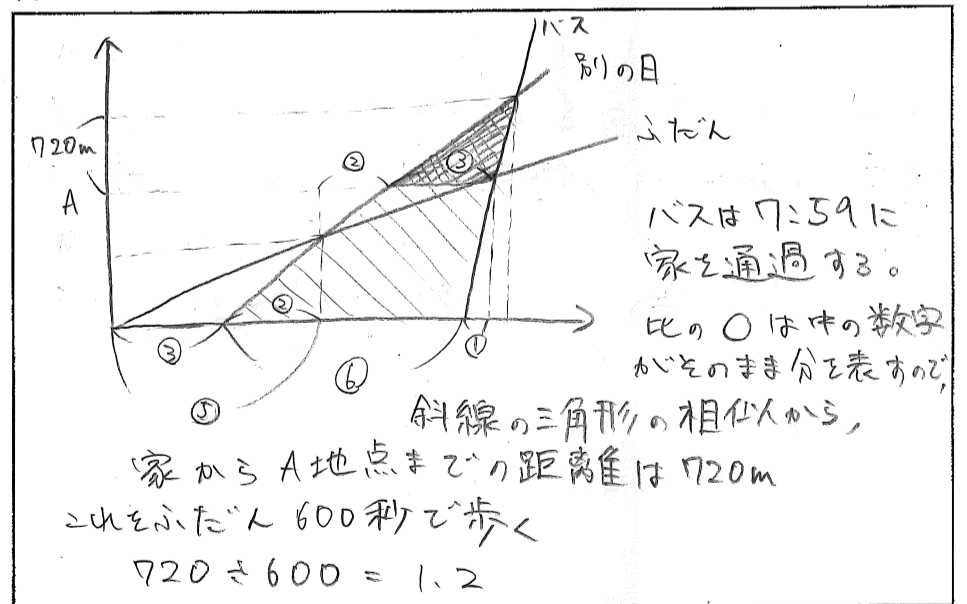 バス
別の日
ふだん
720m
A
②
③
②
③
⑥
①
⑤
バスは7:59に
家を通過する。
比の○は中の数字
がそのまま分を表すので、
斜線の三角形の相似から、
家からA地点までの距離は720m
これをふだん600秒で歩く
720÷600=1.2